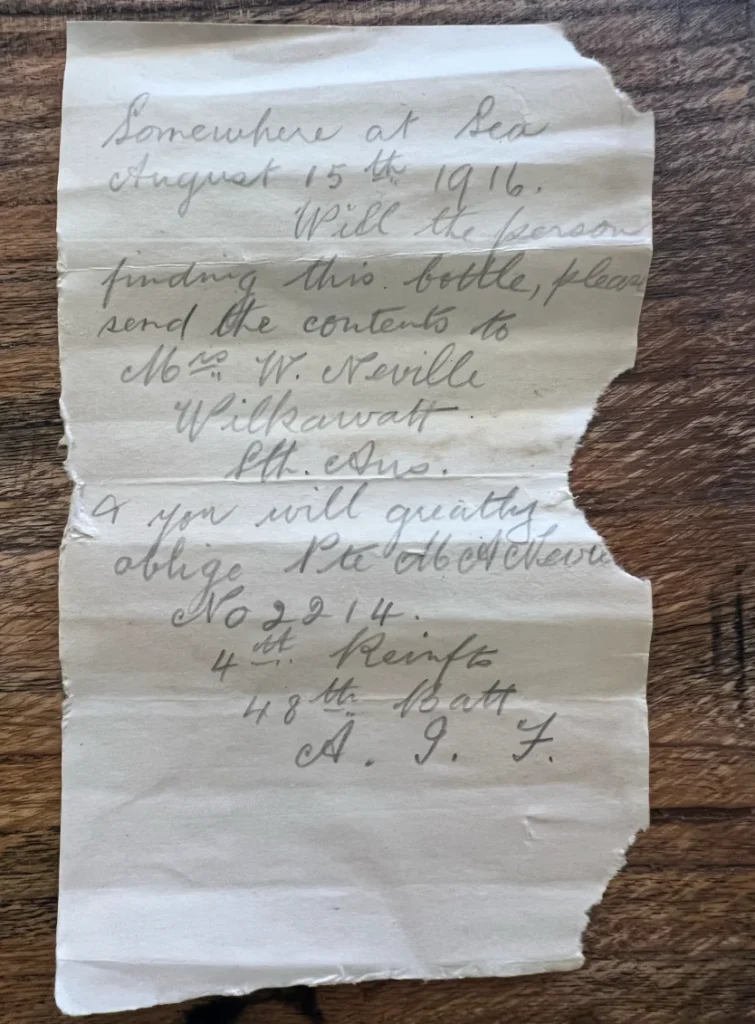 Somewhere at Sea
August 15th 1916.
Will the person
finding this bottle, please
send the contents to
Mrs W. Neville
Wilkawatt
Sth. Aus.
& you will greatly
oblige Pte M A Nevi
No 2214.
4th Reinfts
48th Batt
A. I. F.